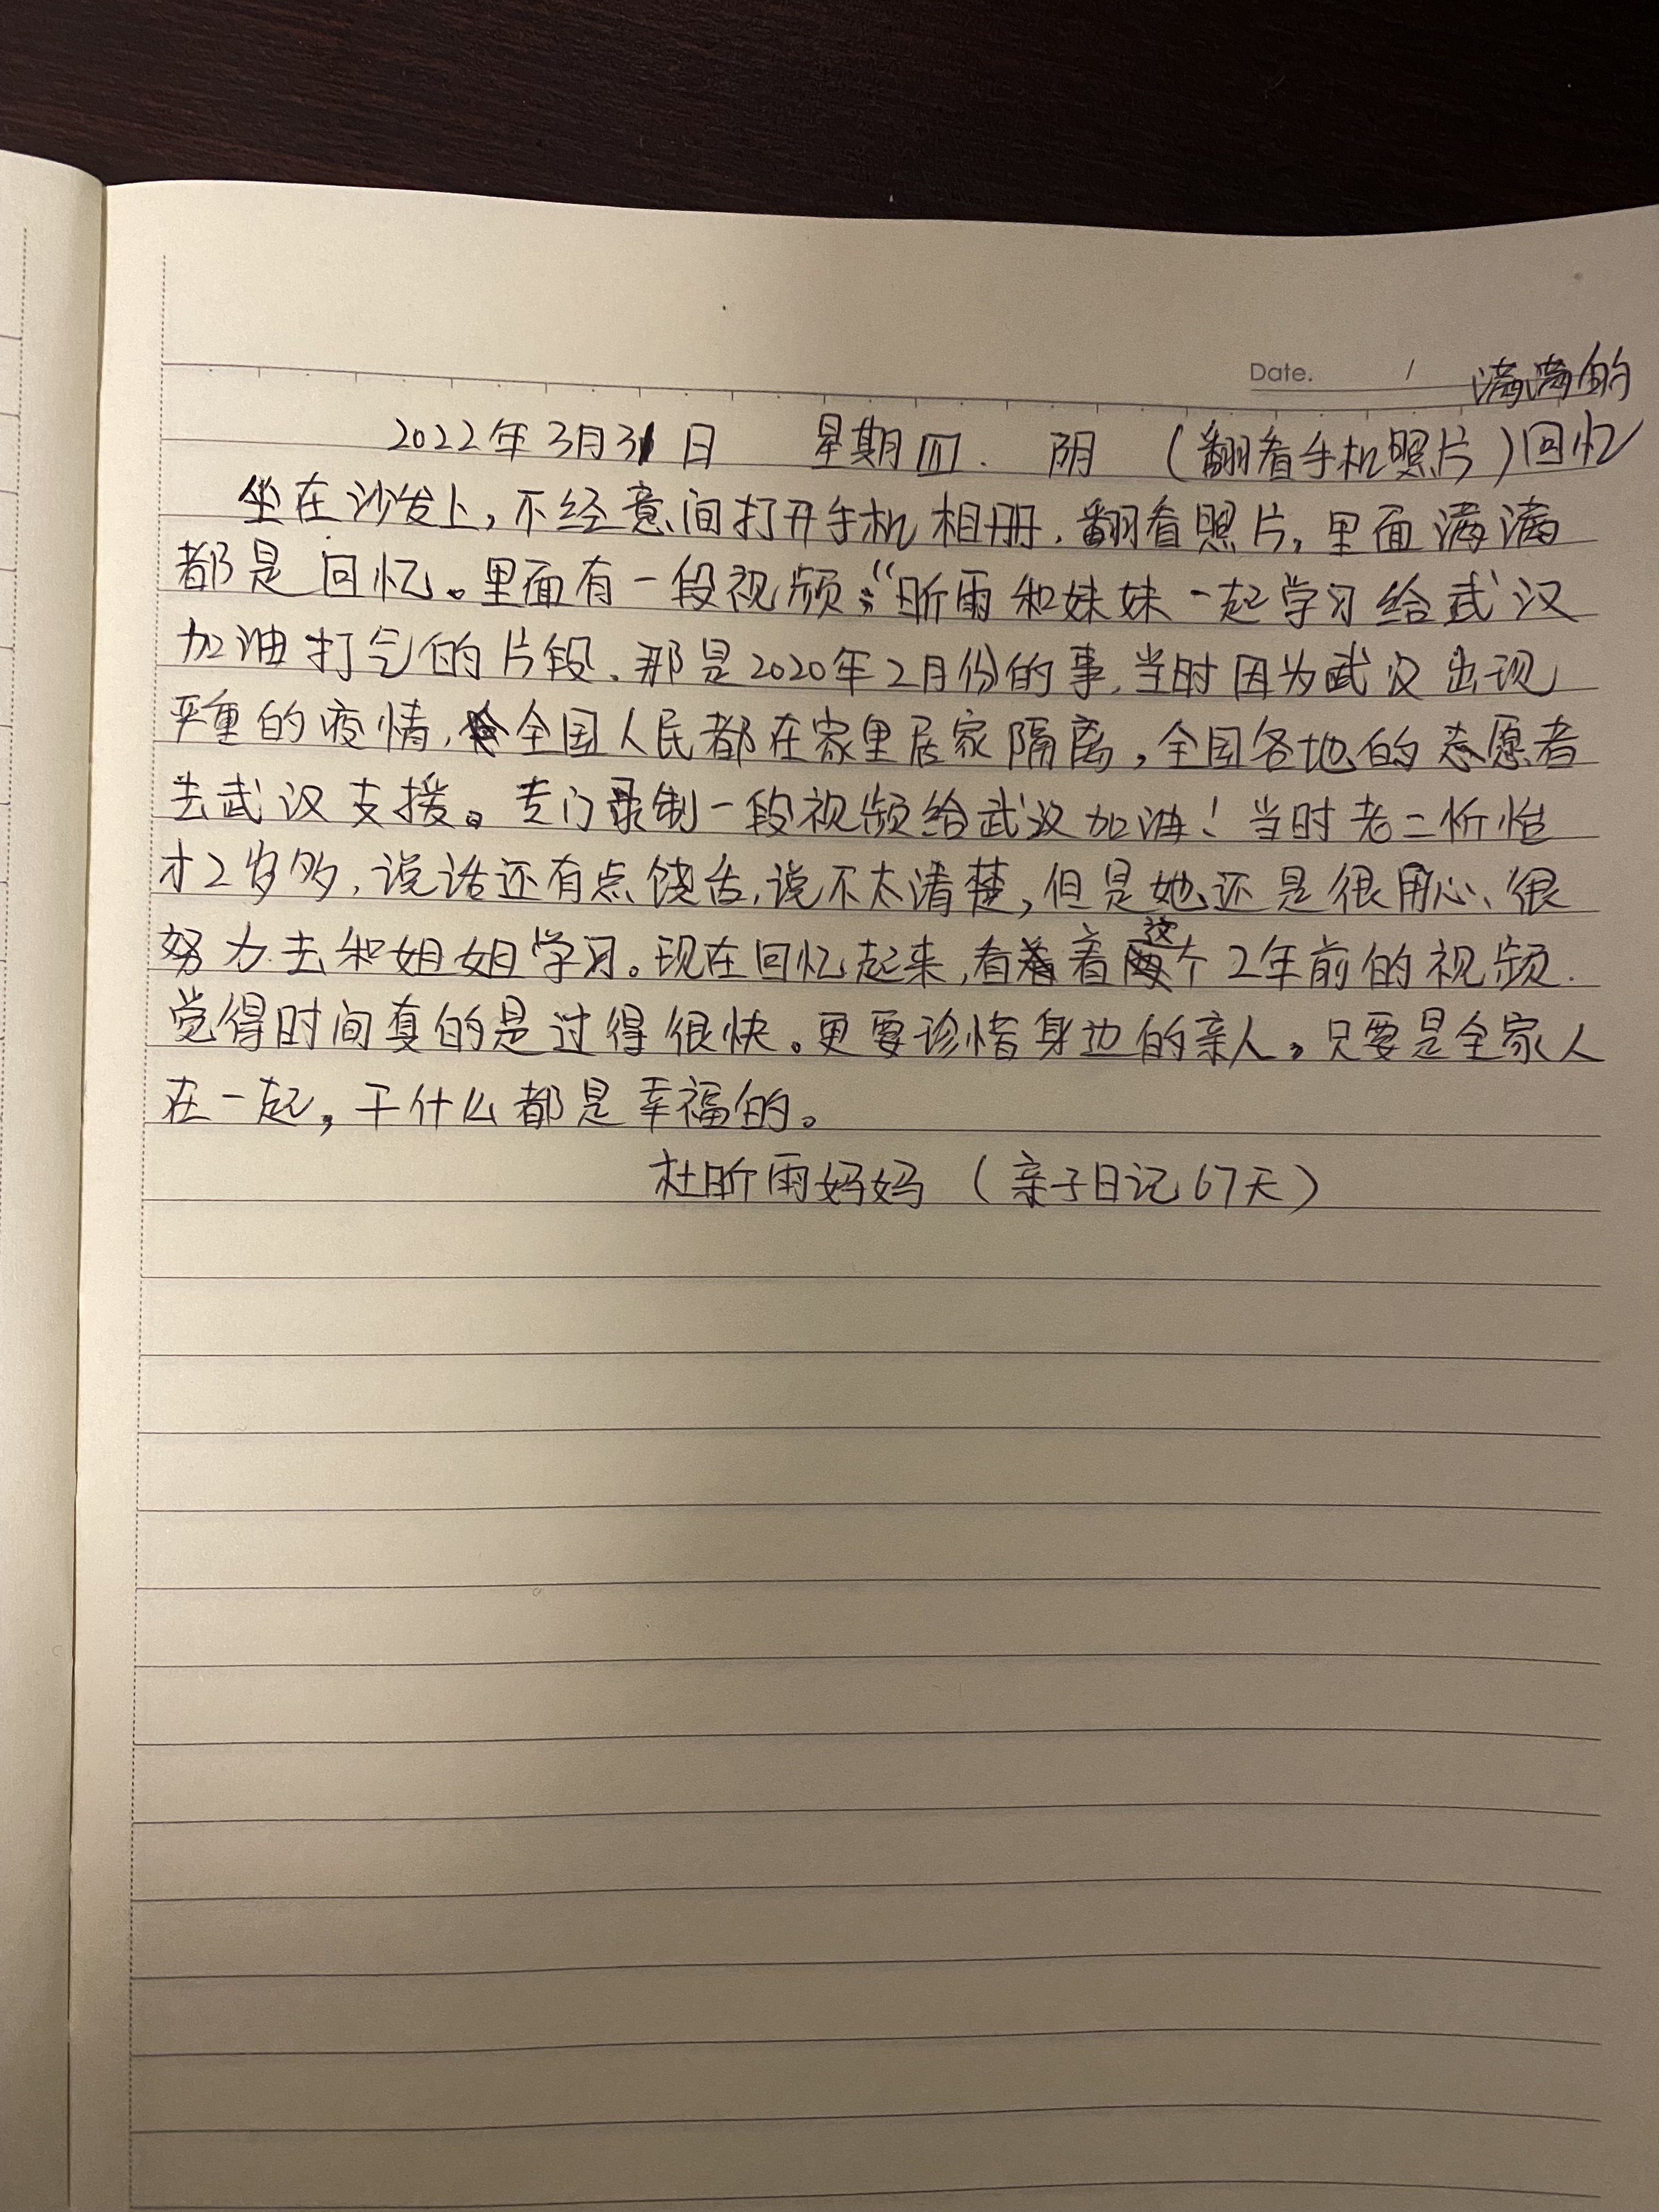 Date. /
满满的
2022年3月31日 星期四. 阴 (翻看手机照片)回忆
坐在沙发上,不经意间打开手机相册,翻看照片,里面满满
都是回忆。里面有一段视频:“昕雨和妹妹一起学习给武汉
加油打气的片段,那是2020年2月份的事,当时因为武汉出现
严重的疫情,全国人民都在家里居家隔离,全国各地的志愿者
去武汉支援。专门录制一段视频给武汉加油!当时老二忻怡
才2岁多,说话还有点饶舌,说不太清楚,但是她还是很用心、很
努力去和姐姐学习。现在回忆起来,看着这个2年前的视频.
觉得时间真的是过得很快。更要珍惜身边的亲人。只要是全家人
在一起,干什么都是幸福的。
杜昕雨妈妈 (亲子日记67天)